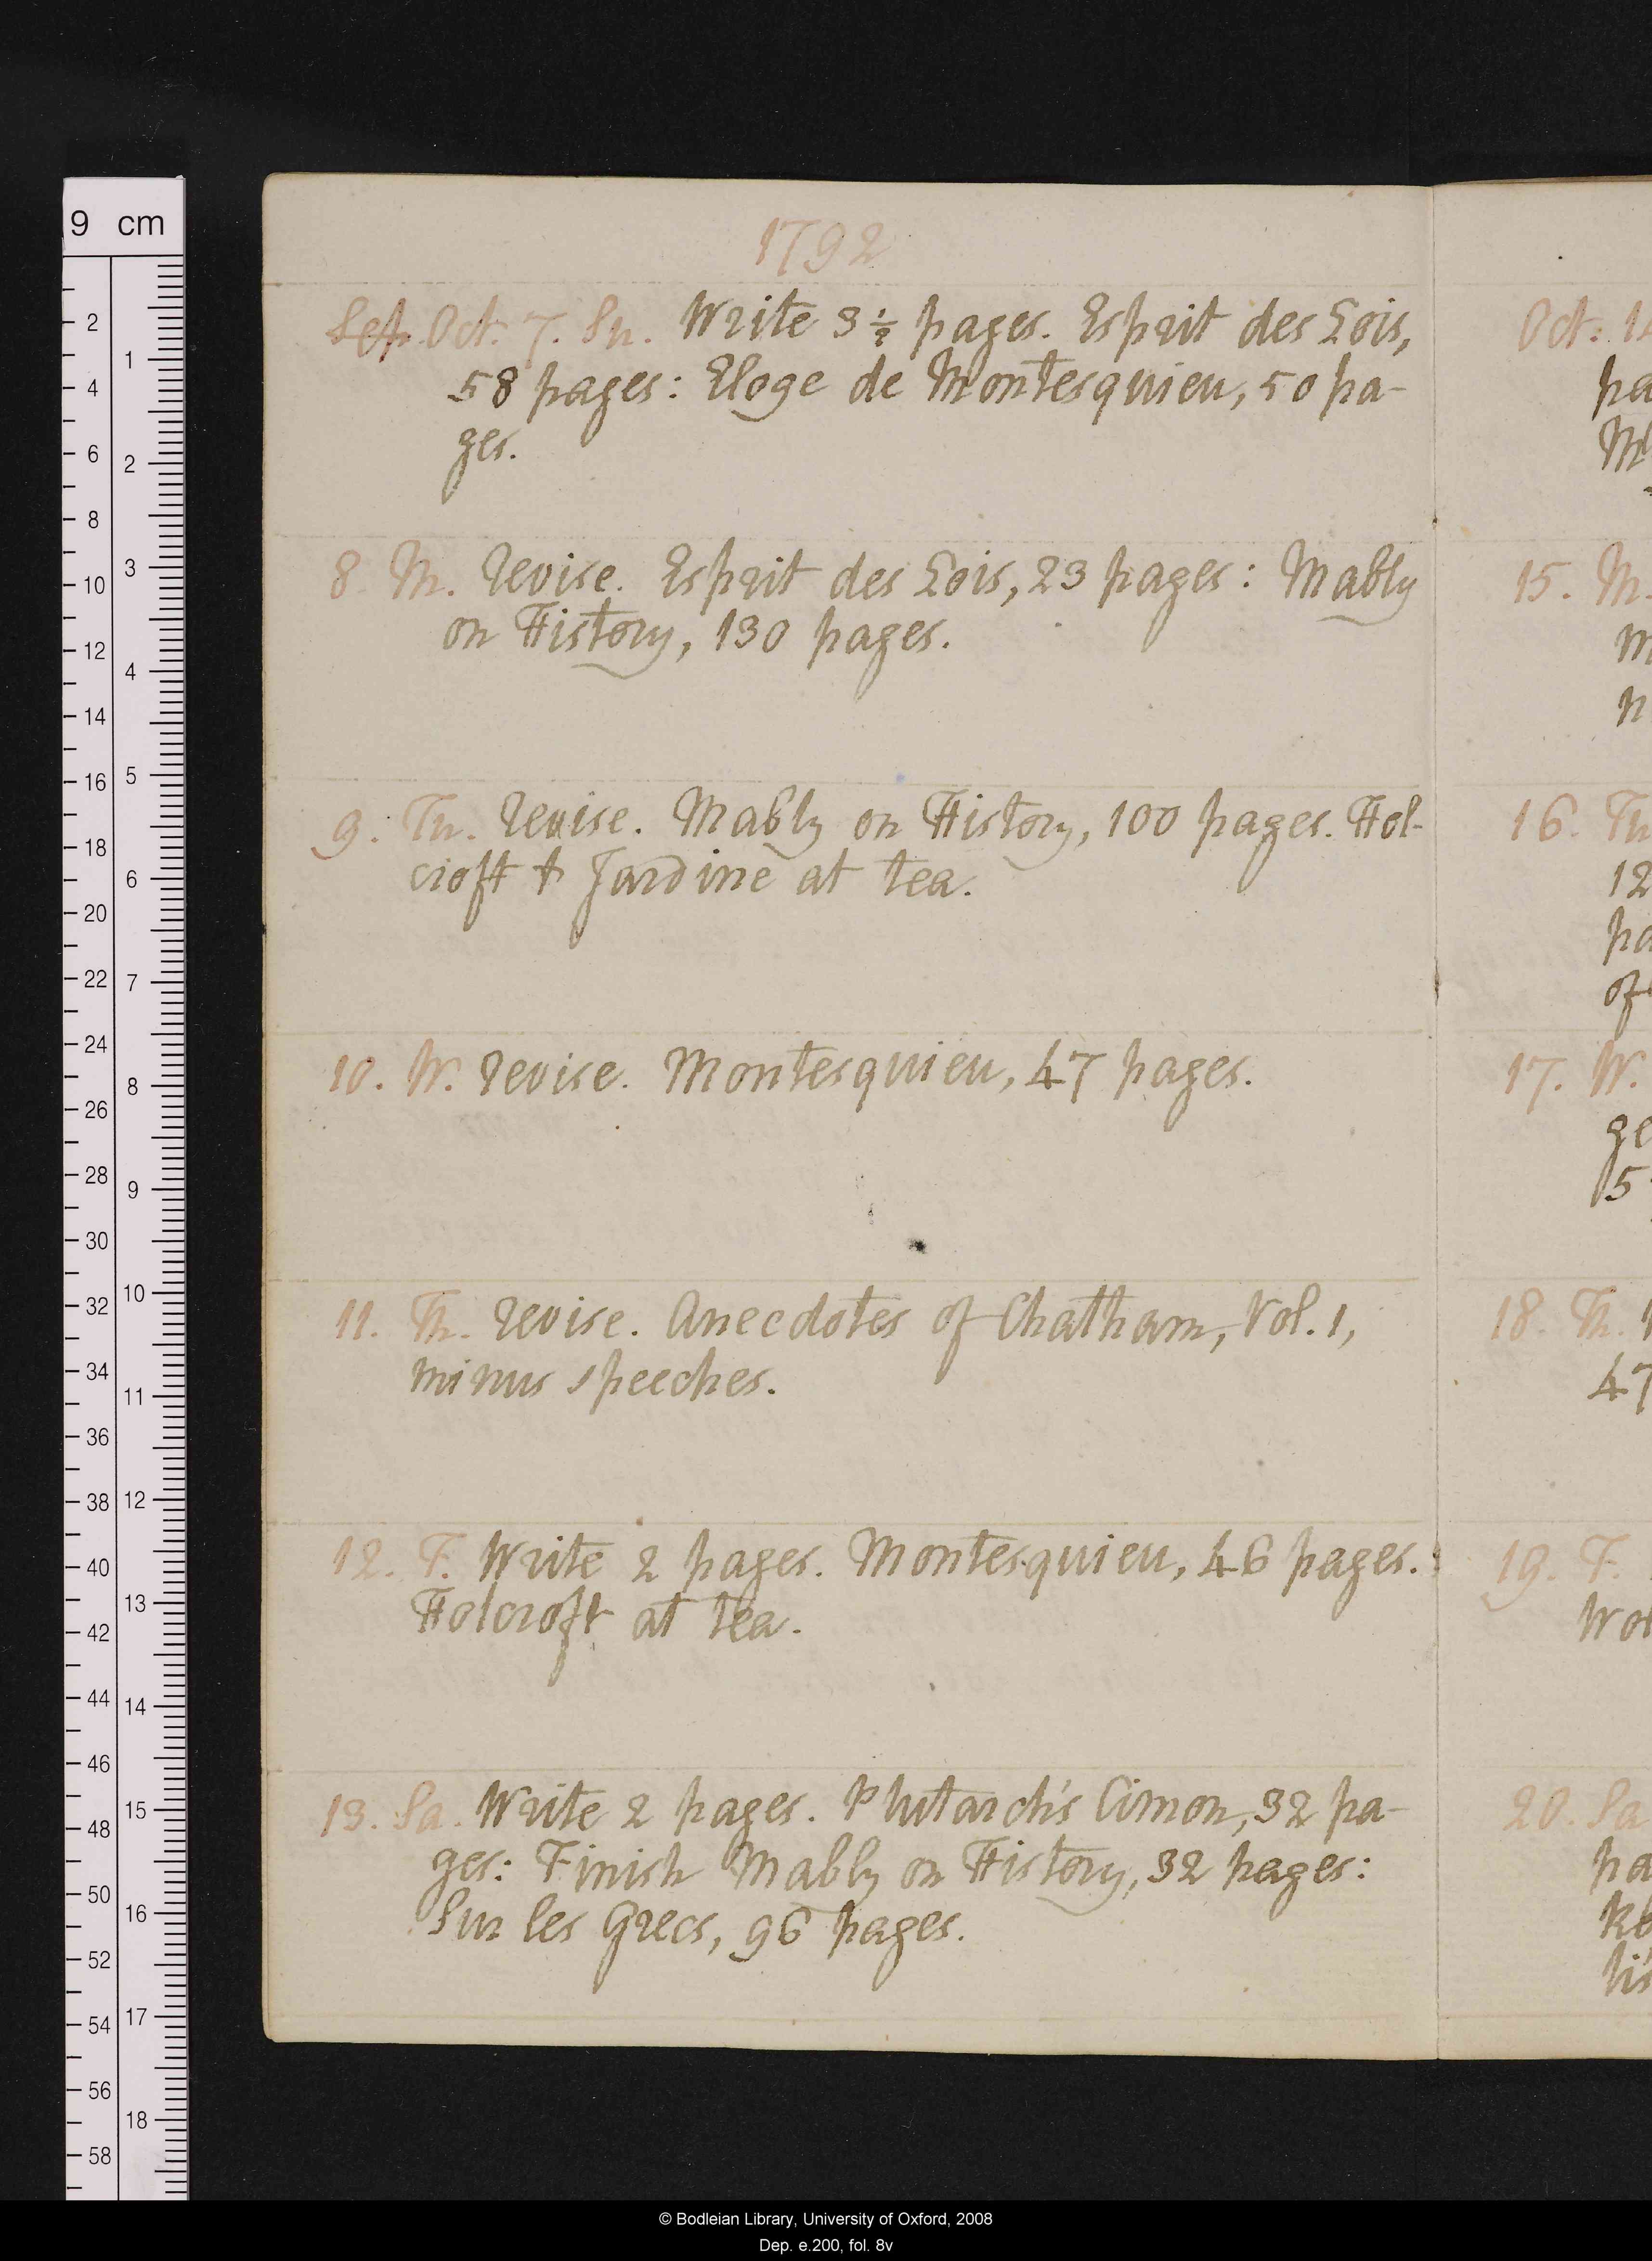 1792
Sep. Oct. 7. Su. Write 3 1/2 pages. Esprit des Lois,
58 pages: Eloge de Montesquieu, 50 pa-
ges.
8. M. Revise. Esprit des Lois, 23 pages: Mably
on History, 130 pages.
9. Tu. Revise. Mably on History, 100 pages. Hol-
croft & Jardine at tea.
10. W. Revise. Montesquieu, 47 pages.
11. Th. Revise. Anecdotes of Chatham, Vol. 1,
minus speeches.
12. F. Write 2 pages. Montesquieu, 46 pages.
Holcroft at tea.
13. Sa. Write 2 pages. Plutarch's Cimon, 32 pa-
ges: Finish Mably on History, 32 pages:
Sur les Grecs, 96 pages.
Oct. 1
pa
15. M.
16. Tu
12
pa
of
17. W.
ge
5
18. Th.
47
19. F.
Wol
20. Sa
pa
9 cm
2
4
6
8
10
12
14
16
18
20
22
24
26
28
30
32
34
36
38
40
42
44
46
48
50
52
54
56
58
1
2
3
4
5
6
7
8
9
10
11
12
13
14
15
16
17
18
© Bodleian Library, University of Oxford, 2008
Dep. e.200, fol. 8v